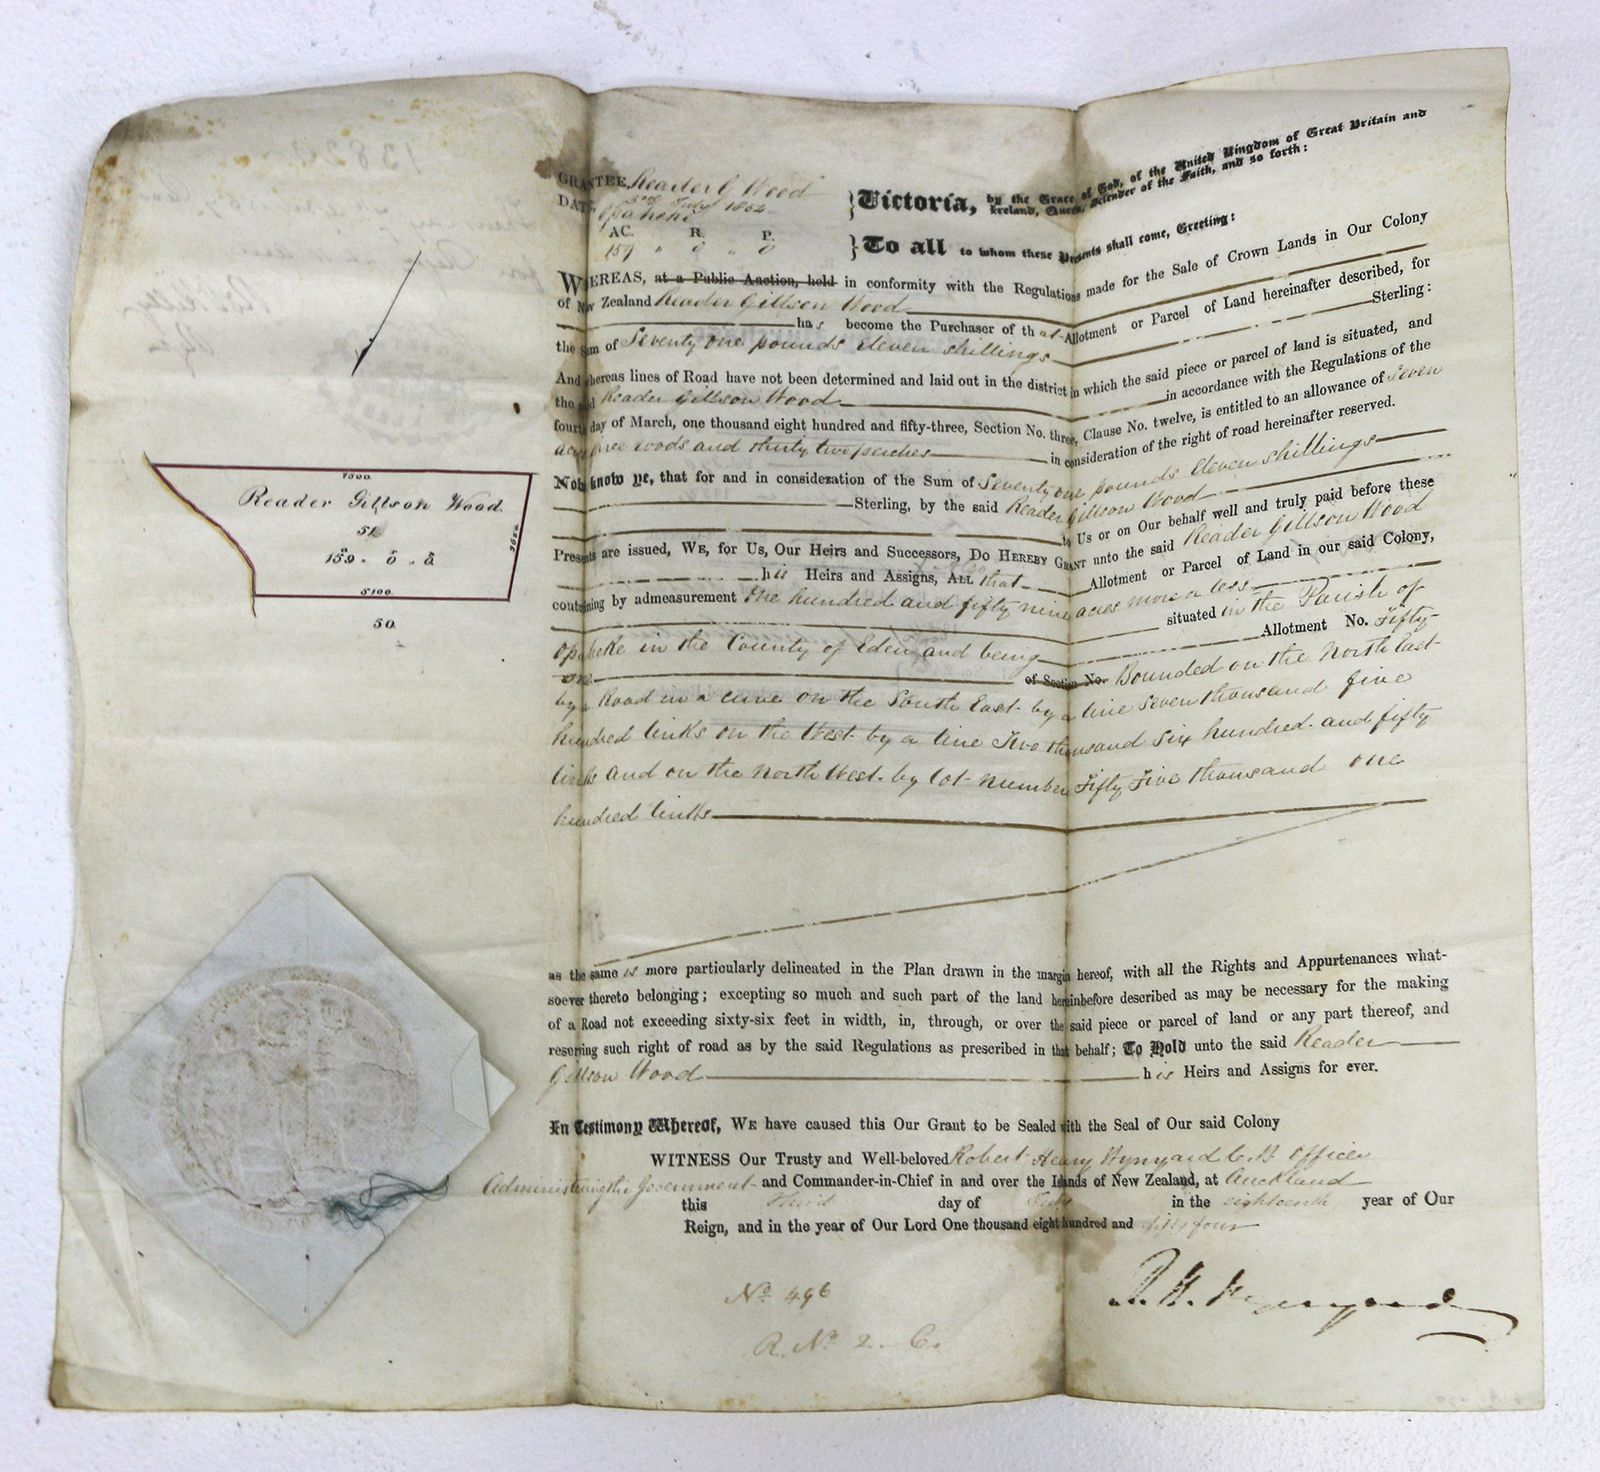 GRANTEE, Reader G Wood
DATE, 3rd July 1854
Opaheke
AC. R. P.
159 " 0 " 0
Victoria, by the Grace of God, of the United Kingdom of Great Britain and
Ireland, Queen, Defender of the Faith, and so forth:
To all to whom these Presents shall come, Greeting:
WHEREAS, at a Public Auction, held in conformity with the Regulations made for the Sale of Crown Lands in Our Colony
of New Zealand Reader Gillson Wood
has become the Purchaser of that Allotment or Parcel of Land hereinafter described, for
the Sum of Seventy one pounds eleven shillings Sterling:
And whereas lines of Road have not been determined and laid out in the district in which the said piece or parcel of land is situated, and
the said Reader Gillson Wood in accordance with the Regulations of the
fourth day of March, one thousand eight hundred and fifty-three, Section No. three, Clause No. twelve, is entitled to an allowance of Seven
acres three roods and thirty two perches in consideration of the right of road hereinafter reserved.
Now know ye, that for and in consideration of the Sum of Seventy one pounds Eleven shillings
Sterling, by the said Reader Gillson Wood
to Us or on Our behalf well and truly paid before these
Presents are issued, WE, for Us, Our Heirs and Successors, DO HEREBY GRANT unto the said Reader Gillson Wood
his Heirs and Assigns, ALL that Allotment or Parcel of Land in our said Colony,
containing by admeasurement One hundred and fifty nine acres more or less
situated in the Parish of
Opaheke in the County of Eden and being Allotment No. Fifty
one of Section No. Bounded on the North East
by a Road in a curve on the South East by a line Seven thousand five
hundred links on the West by a line Two thousand six hundred and fifty
links and on the North West by lot number Fifty Five thousand one
hundred links
as the same is more particularly delineated in the Plan drawn in the margin hereof, with all the Rights and Appurtenances what-
soever thereto belonging; excepting so much and such part of the land hereinbefore described as may be necessary for the making
of a Road not exceeding sixty-six feet in width, in, through, or over the said piece or parcel of land or any part thereof, and
reserving such right of road as by the said Regulations as prescribed in that behalf; To Hold unto the said Reader
Gillson Wood his Heirs and Assigns for ever.
In Testimony Whereof, WE have caused this Our Grant to be Sealed with the Seal of Our said Colony
WITNESS Our Trusty and Well-beloved Robert Henry Wynyard C.B. Officer
Administering the Government and Commander-in-Chief in and over the Islands of New Zealand, at Auckland
this third day of July in the eighteenth year of Our
Reign, and in the year of Our Lord One thousand eight hundred and fifty four
R. H. Wynyard
No. 496
R. No. 2. C.
7500
Reader Gillson Wood.
51
159. 0. 0
5100
50.